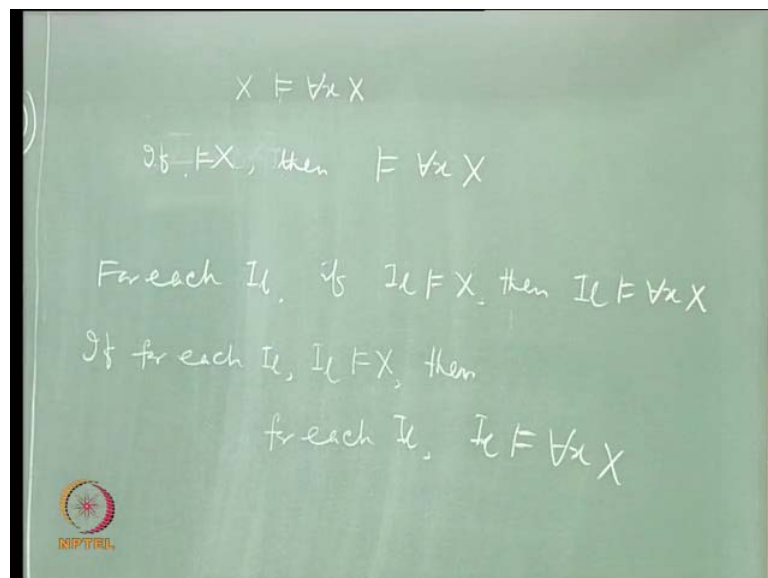 X ⊨ ∀x X
If ⊨X, then ⊨ ∀x X
For each Il, if Il ⊨ X, then Il ⊨ ∀x X
If for each Il, Il ⊨X, then
for each Il, Il ⊨ ∀x X
NPTEL